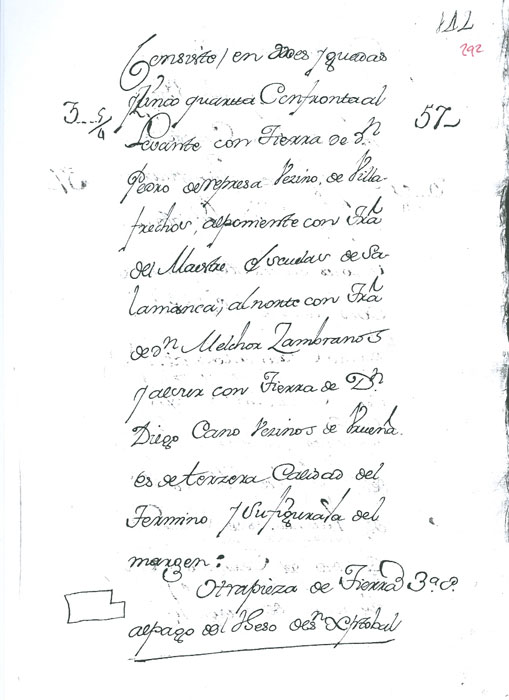 112
292
Consiste / en dos yguadas
3 5/4 y zinco quartas Confronta al 57
Levante con Tierra de Dn
Pedro de represa Vezino de Villa-
frechos, al poniente con Trâ
del Maestre Escuelas de Sa-
lamanca; al norte con Trâ
de Dn Melchor Zambranos
y al sur con Tierra de Dn
Diego Cano Vezinos de Rueña.
es de terzera Calidad del
Termino y su figura la del
margen:
Otra pieza de Tierra 3ª c.
al pago del de Sn Xptobal